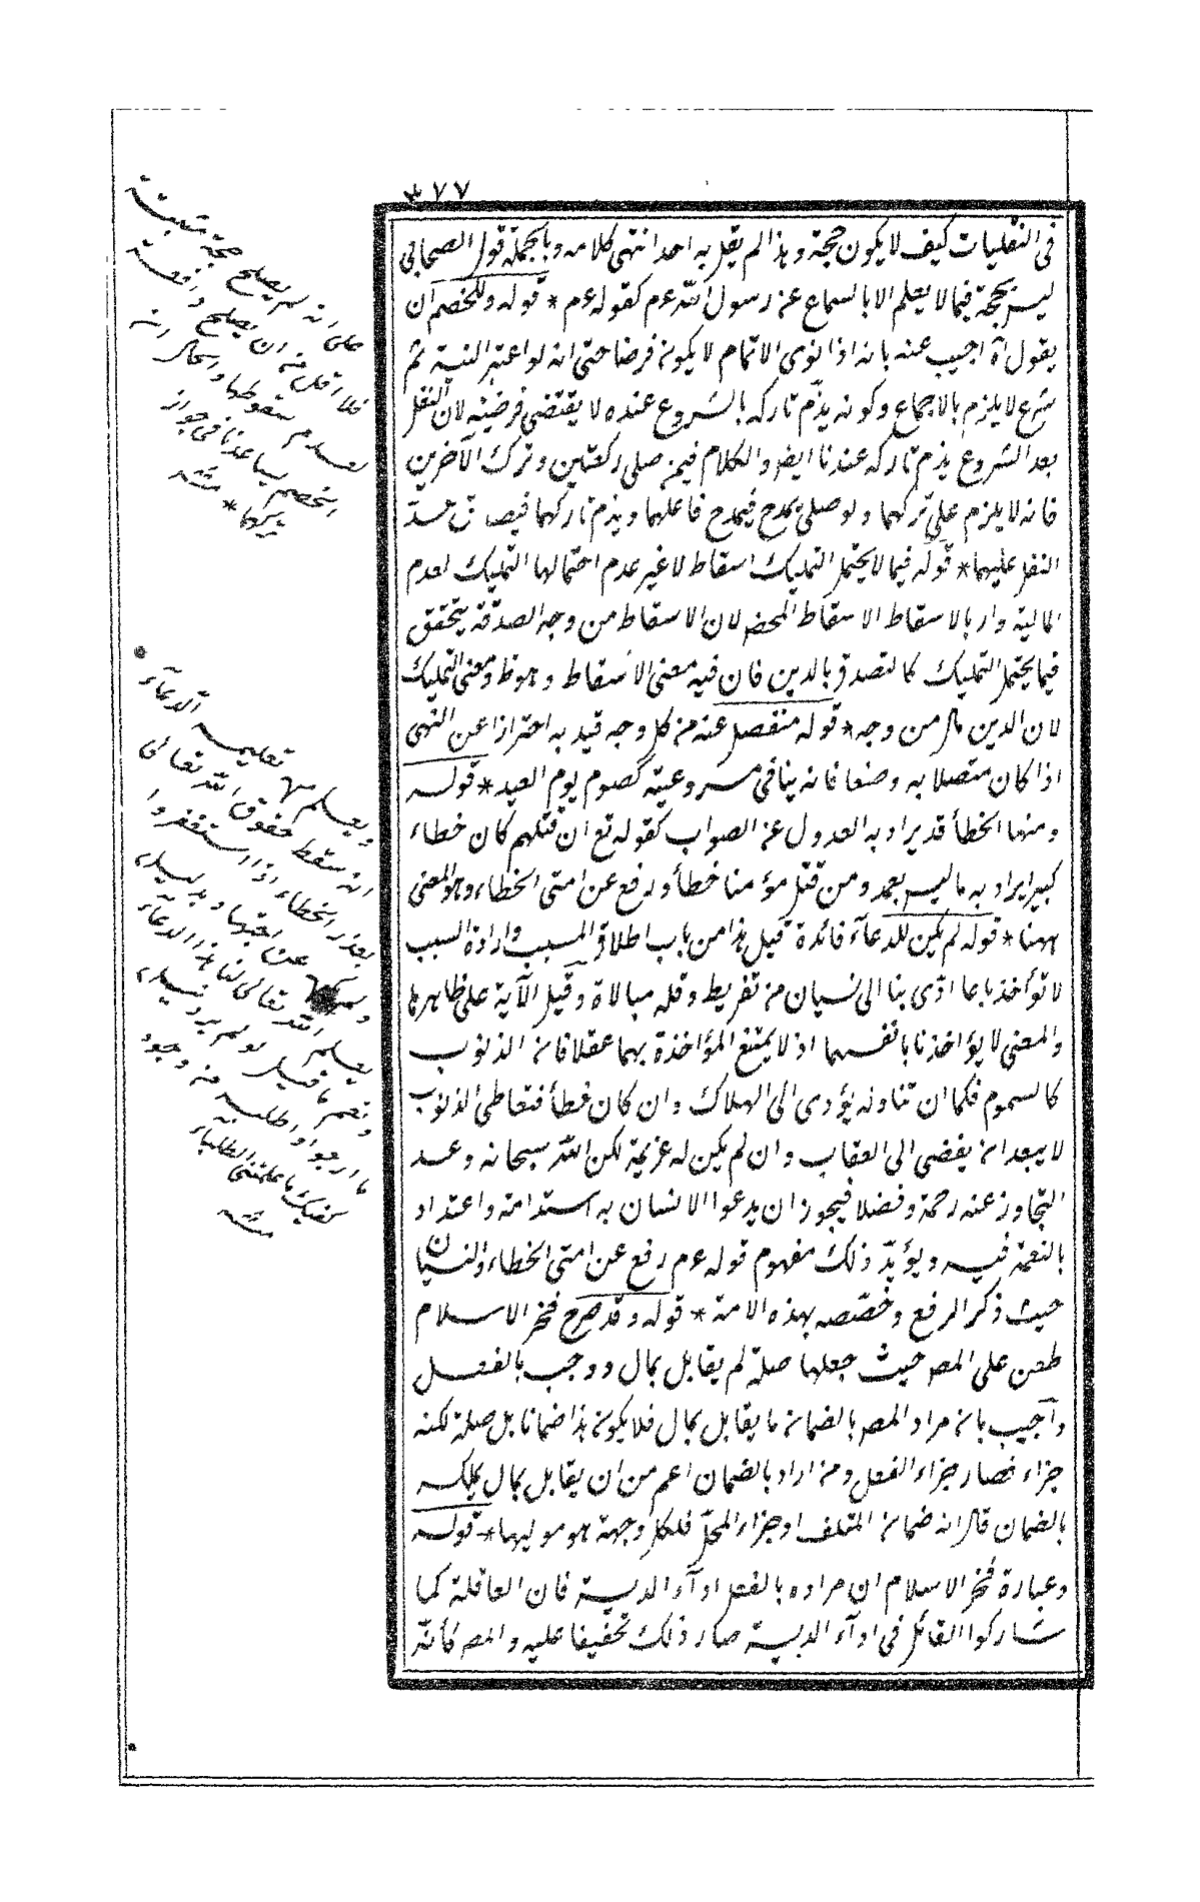 ٣٧٧
فى النقليات كيف لا يكون حجة وهذا لم يقل به احد انتهى كلامه وبالجملة قول الصحابى
ليس بحجة فيما لا يعلم الا بالسماع عن رسول الله عم كقوله عم * قوله وللخصم ان
يقول آه اجيب عنه بانه اذا نوى الاتمام لا يكون فرضا حتى انه لو اعتبر النية ثم
شرع لا يلزم بالاجماع وكونه يذم تاركه بالشروع عنده لا يقتضى فرضيته لان النفل
بعد الشروع يذم تاركه عندنا ايضا والكلام فيمن صلى ركعتين وترك الآخرين
فانه لا يلزم على تركهما ولو صلى يمدح فيمدح فاعلهما ويذم تاركهما فيصدق حد
النفل عليهما * قوله فيما لا يحتمل التمليك اسقاط لا غير عدم احتمالها التمليك لعدم
المالية واراد بالاسقاط الاسقاط المحض لان الاسقاط من وجه الصدقة يتحقق
فيما يحتمل التمليك كالتصدق بالدين فان فيه معنى الاسقاط وهو ظ ومعنى التمليك
لان الدين مال من وجه * قوله منفصل عنه من كل وجه قيد به احترازا عن النهى
اذا كان متصلا به وصفا فانه ينافى مشروعيته كصوم يوم العيد * قوله
ومنها الخطأ قد يراد به العدول عن الصواب كقوله تع ان قتلهم كان خطاء
كبيرا يراد به ما ليس بعمد ومن قتل مؤمنا خطأ ورفع عن امتى الخطاء وهو المعنى
ههنا * قوله لم يكن للدعاء فائدة قيل هذا من باب اطلاق المسبب وارادة السبب
لا تؤاخذنا بما ادّى بنا الى نسيان من تفريط وقلة مبالاة وقيل الآية على ظاهرها
والمعنى لا يؤاخذنا بانفسهما اذ لا يمتنع المؤاخذة بهما عقلا فان الذنوب
كالسموم فكما ان تناوله يؤدى الى الهلاك وان كان خطأ فتعاطى الذنوب
لا يبعد ان يفضى الى العقاب وان لم يكن له عزيمة لكن الله سبحانه وعد
التجاوز عنه رحمة وفضلا فيجوز ان يدعوا الانسان به استدامة واعتداد
بالنعمة فيه ويؤيد ذلك مفهوم قوله عم رفع عن امتى الخطاء والنسيان
حيث ذكر الرفع وخصصه بهذه الامة * قوله وقد صرح فخر الاسلام
طعن على المص حيث جعلها صلة لم يقابل بمال ووجب بالفعل
واجيب بان مراد المص بالضمان ما يقابل بمال فلا يكون هذا ضمانا بل صلة لكنه
جزاء فصار جزاء الفعل ومن اراد بالضمان اعم من ان يقابل بمال يملكه
بالضمان قال انه ضمان المتلف او جزاء المحل فلكل وجهة هو موليها * قوله
وعبارة فخر الاسلام ان مراده بالفعل اداء الدية فان العاقلة كما
شاركوا القاتل فى اداء الدية صار ذلك تخفيفا عليه والمص كأنه
على انه لم يصلح حجة مثبتة
فلا اقل من ان يصلح دافعة
لعدم سقوطها والحال انه
الخصم يساعدنا فى جواز
تركها * منه
ويعلم منها تعليمه الدعاء
انه سقط حقوق الله تعالى
بعذر الخطاء اذا استغفروا
يعلم الله تعالى لنا هذا الدعاء
ونعم ما قيل لو لم يرد نيل
ما ارجوا واطلبه من وجود
كفيك ما علمتنى الطلباء
منه